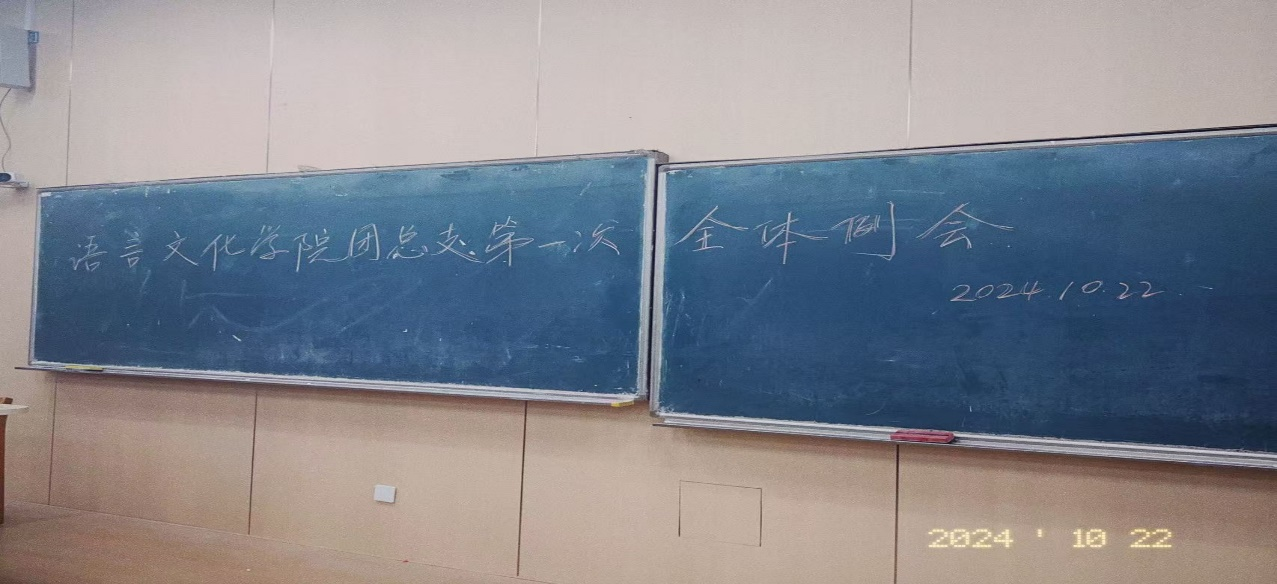 语言文化学院团总支第一次全体例会
2024.10.22
2024 ' 10 22